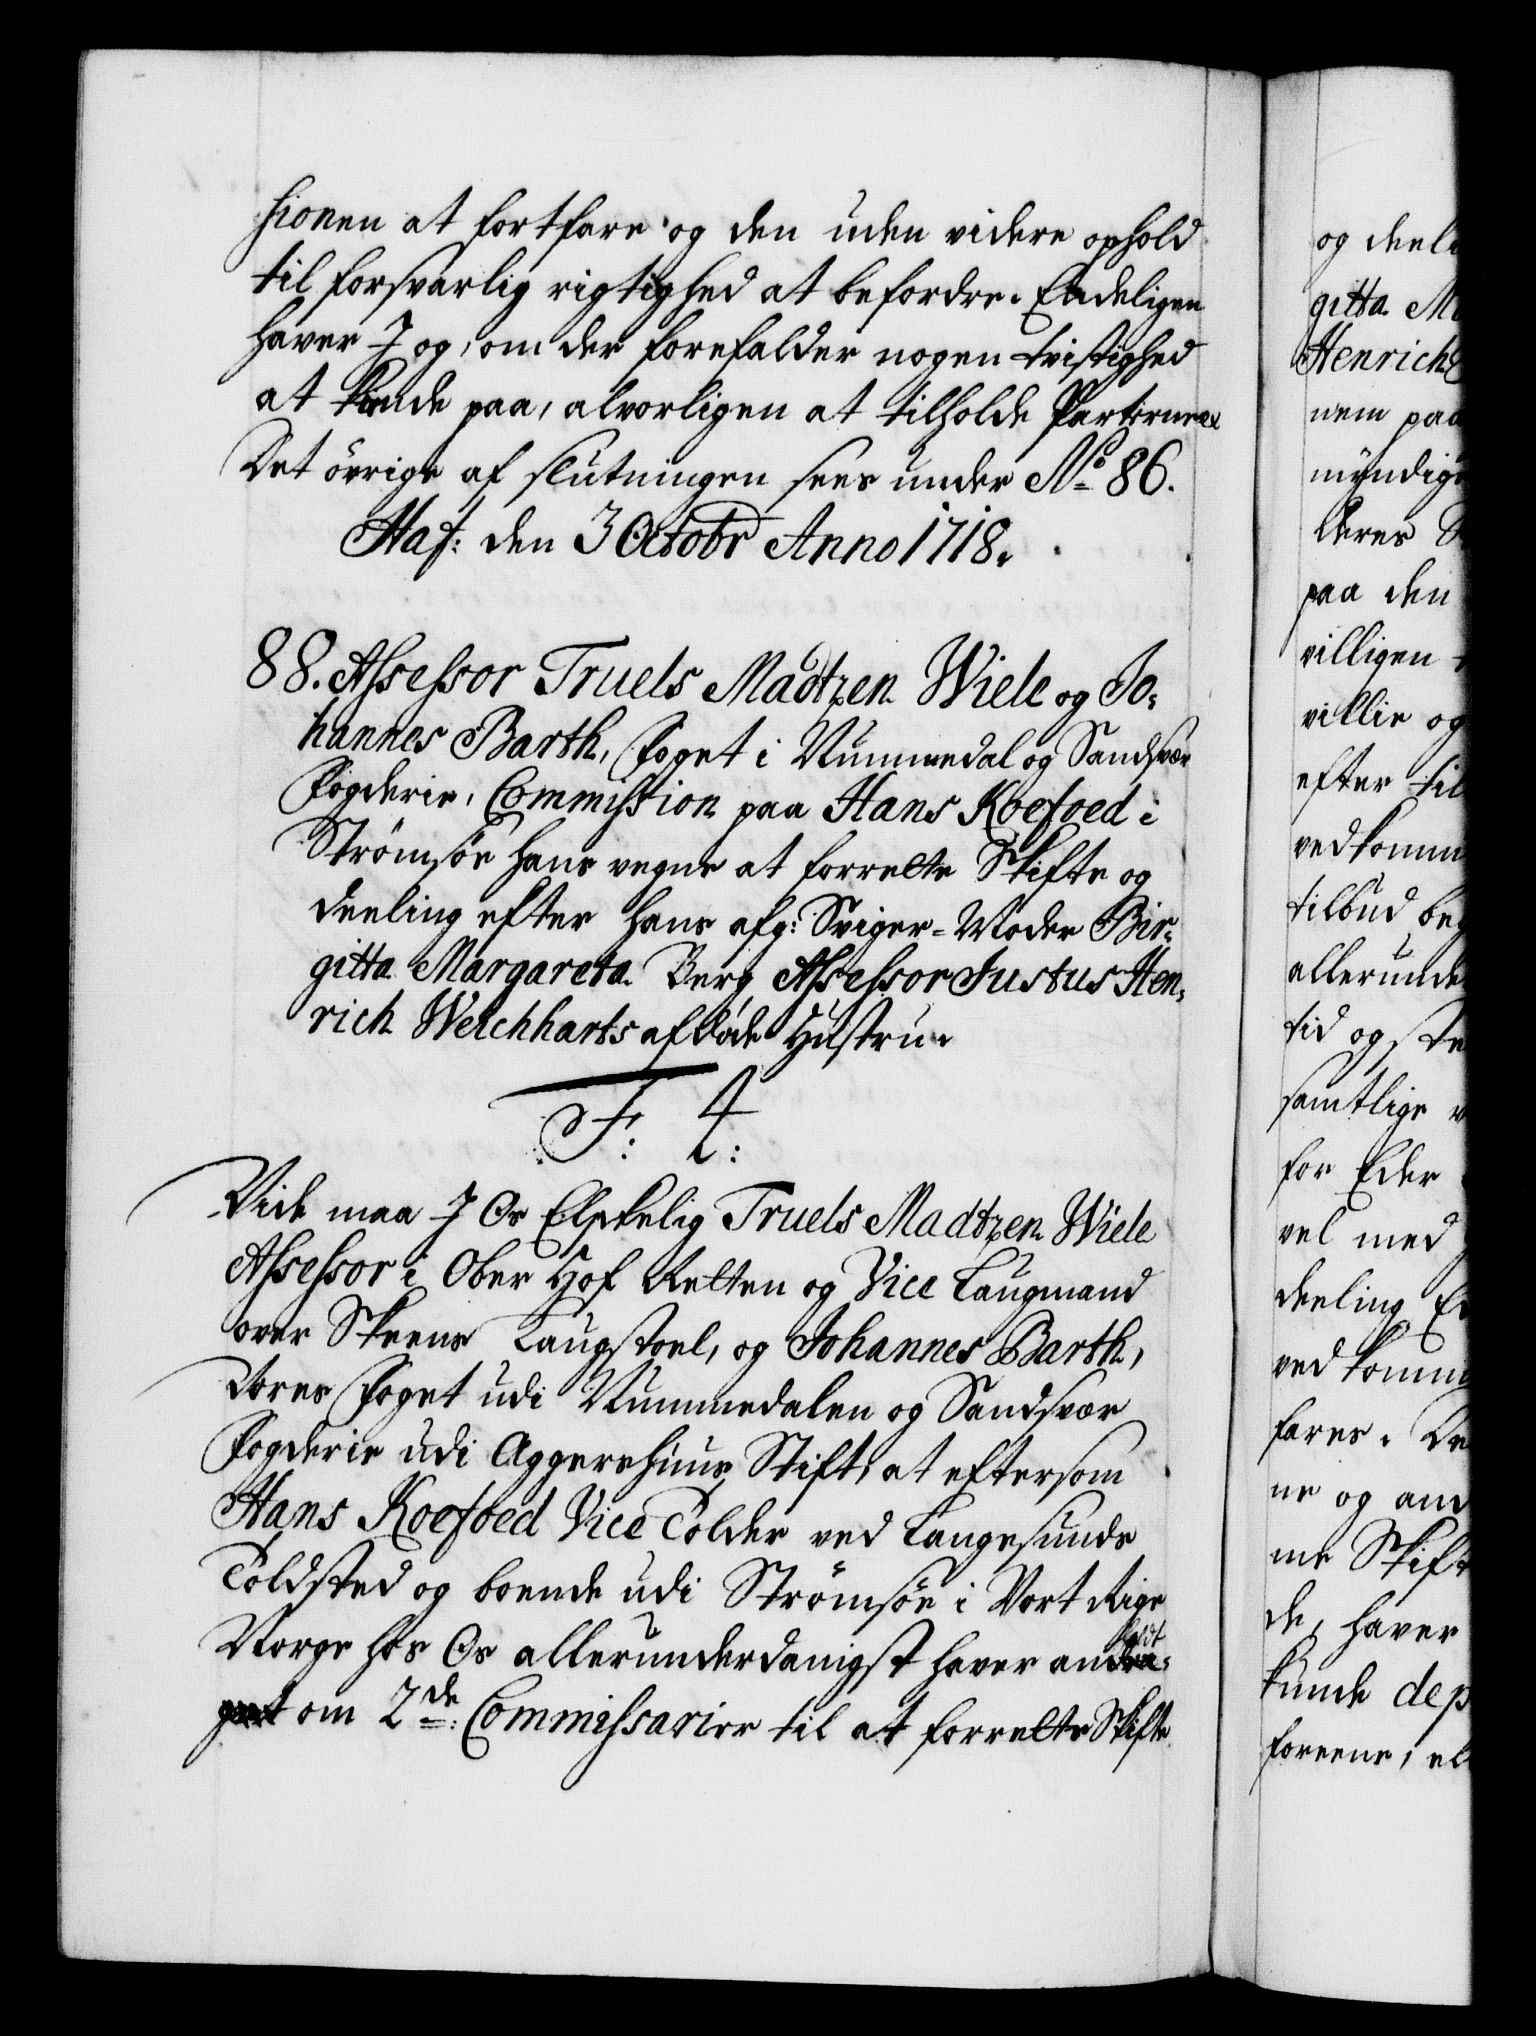 sionen at fortfare og den uden videre ophold
til forsvarlig rigtighed at befordre. Endeligen
haver I og, om der forefalder nogen tvistighed
at kiende paa, alvorligen at tilholde Parterne &
Det öfrige af slutningen sees under No 86.
Haf: den 3 Octobr Anno 1718.
88. Assessor Truels Madtzen Wiele og Jo-
hannes Barth, Foget i Nummedal og Sandsvær
Fogderie, Commission paa Hans Koefoed i
Strømsöe hans vegne at forrette Skifte og
deeling efter hans afg: Sviger-Moder Bir-
gitta Margareta Berg Assessor Justus Hen-
rich Weichharts afdøde Hustru.
F: 4:
Vide maa I Os Elskelig Truels Madtzen Wiele
Assessor i Ober Hof Retten og Vice Laugmand
over Skeens Laugstoel, og Johannes Barth,
Vores Foget udi Nummedalen og Sandsvær
Fogderie udi Aggershuus Stift, at eftersom
Hans Koefoed Vice Tolder ved Langesunds
Toldsted og boende udi Strømsöe i Vort Rige
Norge hos Os allerunderdanigst haver anholdt
om 2de: Commissarier til at forrette Skifte
og deel
gitta M
Henrich
nem paa
myndig
deres S
paa den
villigen
villie og
efter til
vedkomm
tilbud beg
allerunde
tid og ste
samtlige v
for Eder
vel med
deeling E
vedkomm
fares. De
ne og and
me Skift
de, haver
kunde dep
foreene, el